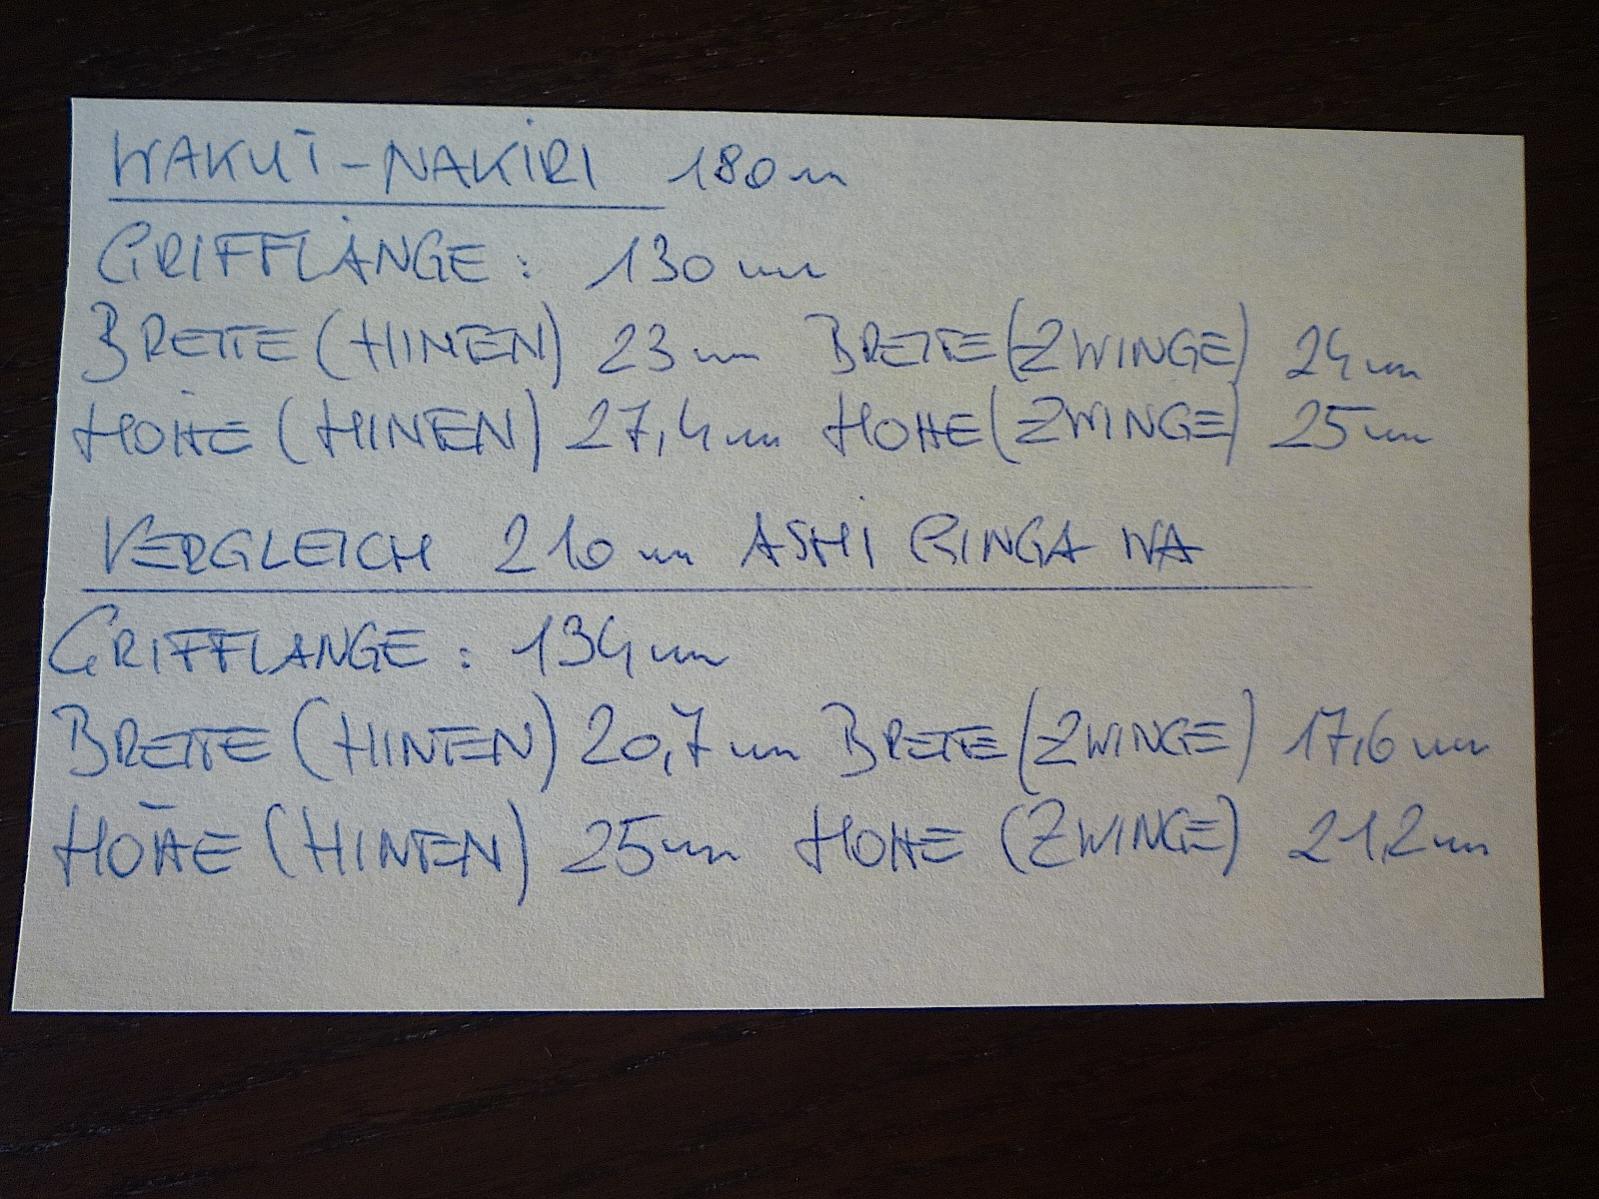 WAKUI-NAKIRI 180mm
GRIFFLÄNGE: 130mm
BREITE (HINTEN) 23mm BREITE (ZWINGE) 24mm
HÖHE (HINTEN) 27,4mm HÖHE (ZWINGE) 25mm
VERGLEICH 210mm ASHI GINGA WA
GRIFFLÄNGE: 134mm
BREITE (HINTEN) 20,7mm BREITE (ZWINGE) 17,6mm
HÖHE (HINTEN) 25mm HÖHE (ZWINGE) 21,2mm